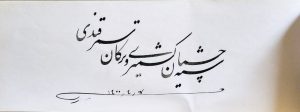 سیه چشمان کشمیری و ترکان سمرقندی